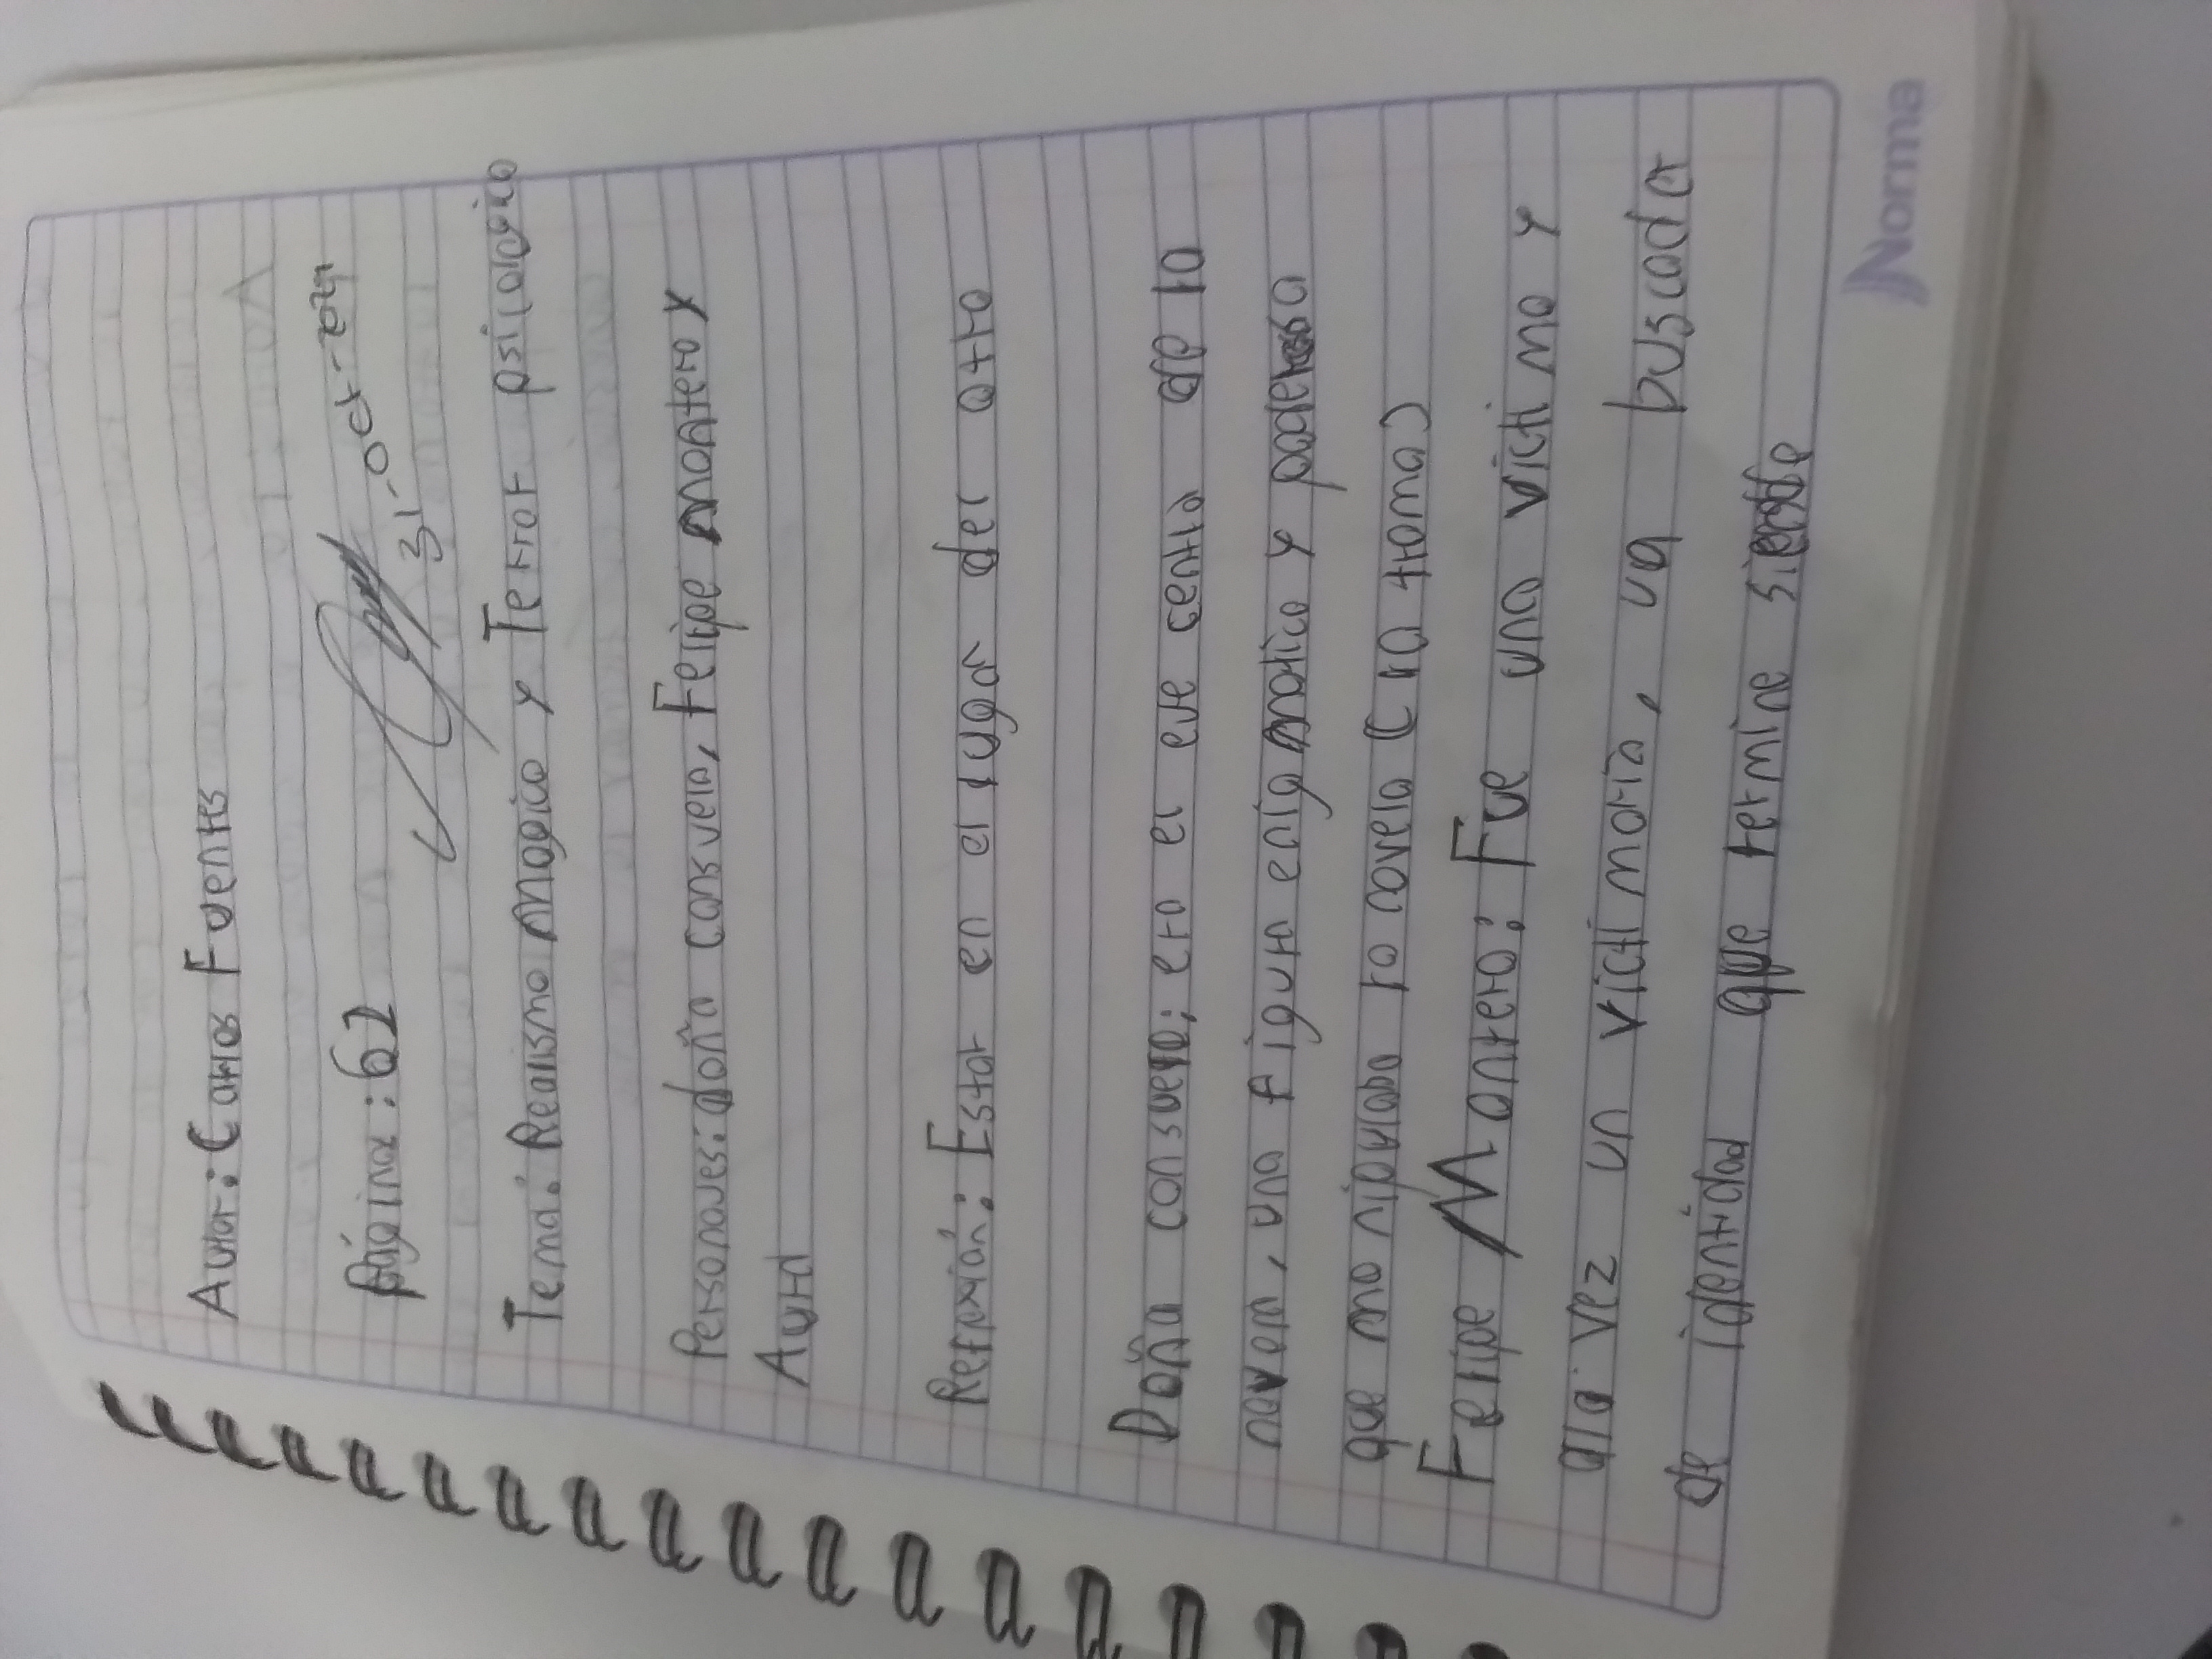 Autor: Carlos Fuentes
Página: 62
31-oct-2024
Tema: Realismo magico y Terror psicologico
Personajes: doña consuelo, Felipe montero y
Aura
Reflexión: Estar en el lugar del otro
Doña consuelo; era el eve centro de la
novela, una figura enigmatica y poderosa
que manipulaba la novela (la trama)
Felipe Montero: Fue una victima y
a la vez un victimario, va buscador
de identidad que termine siendo
Norma